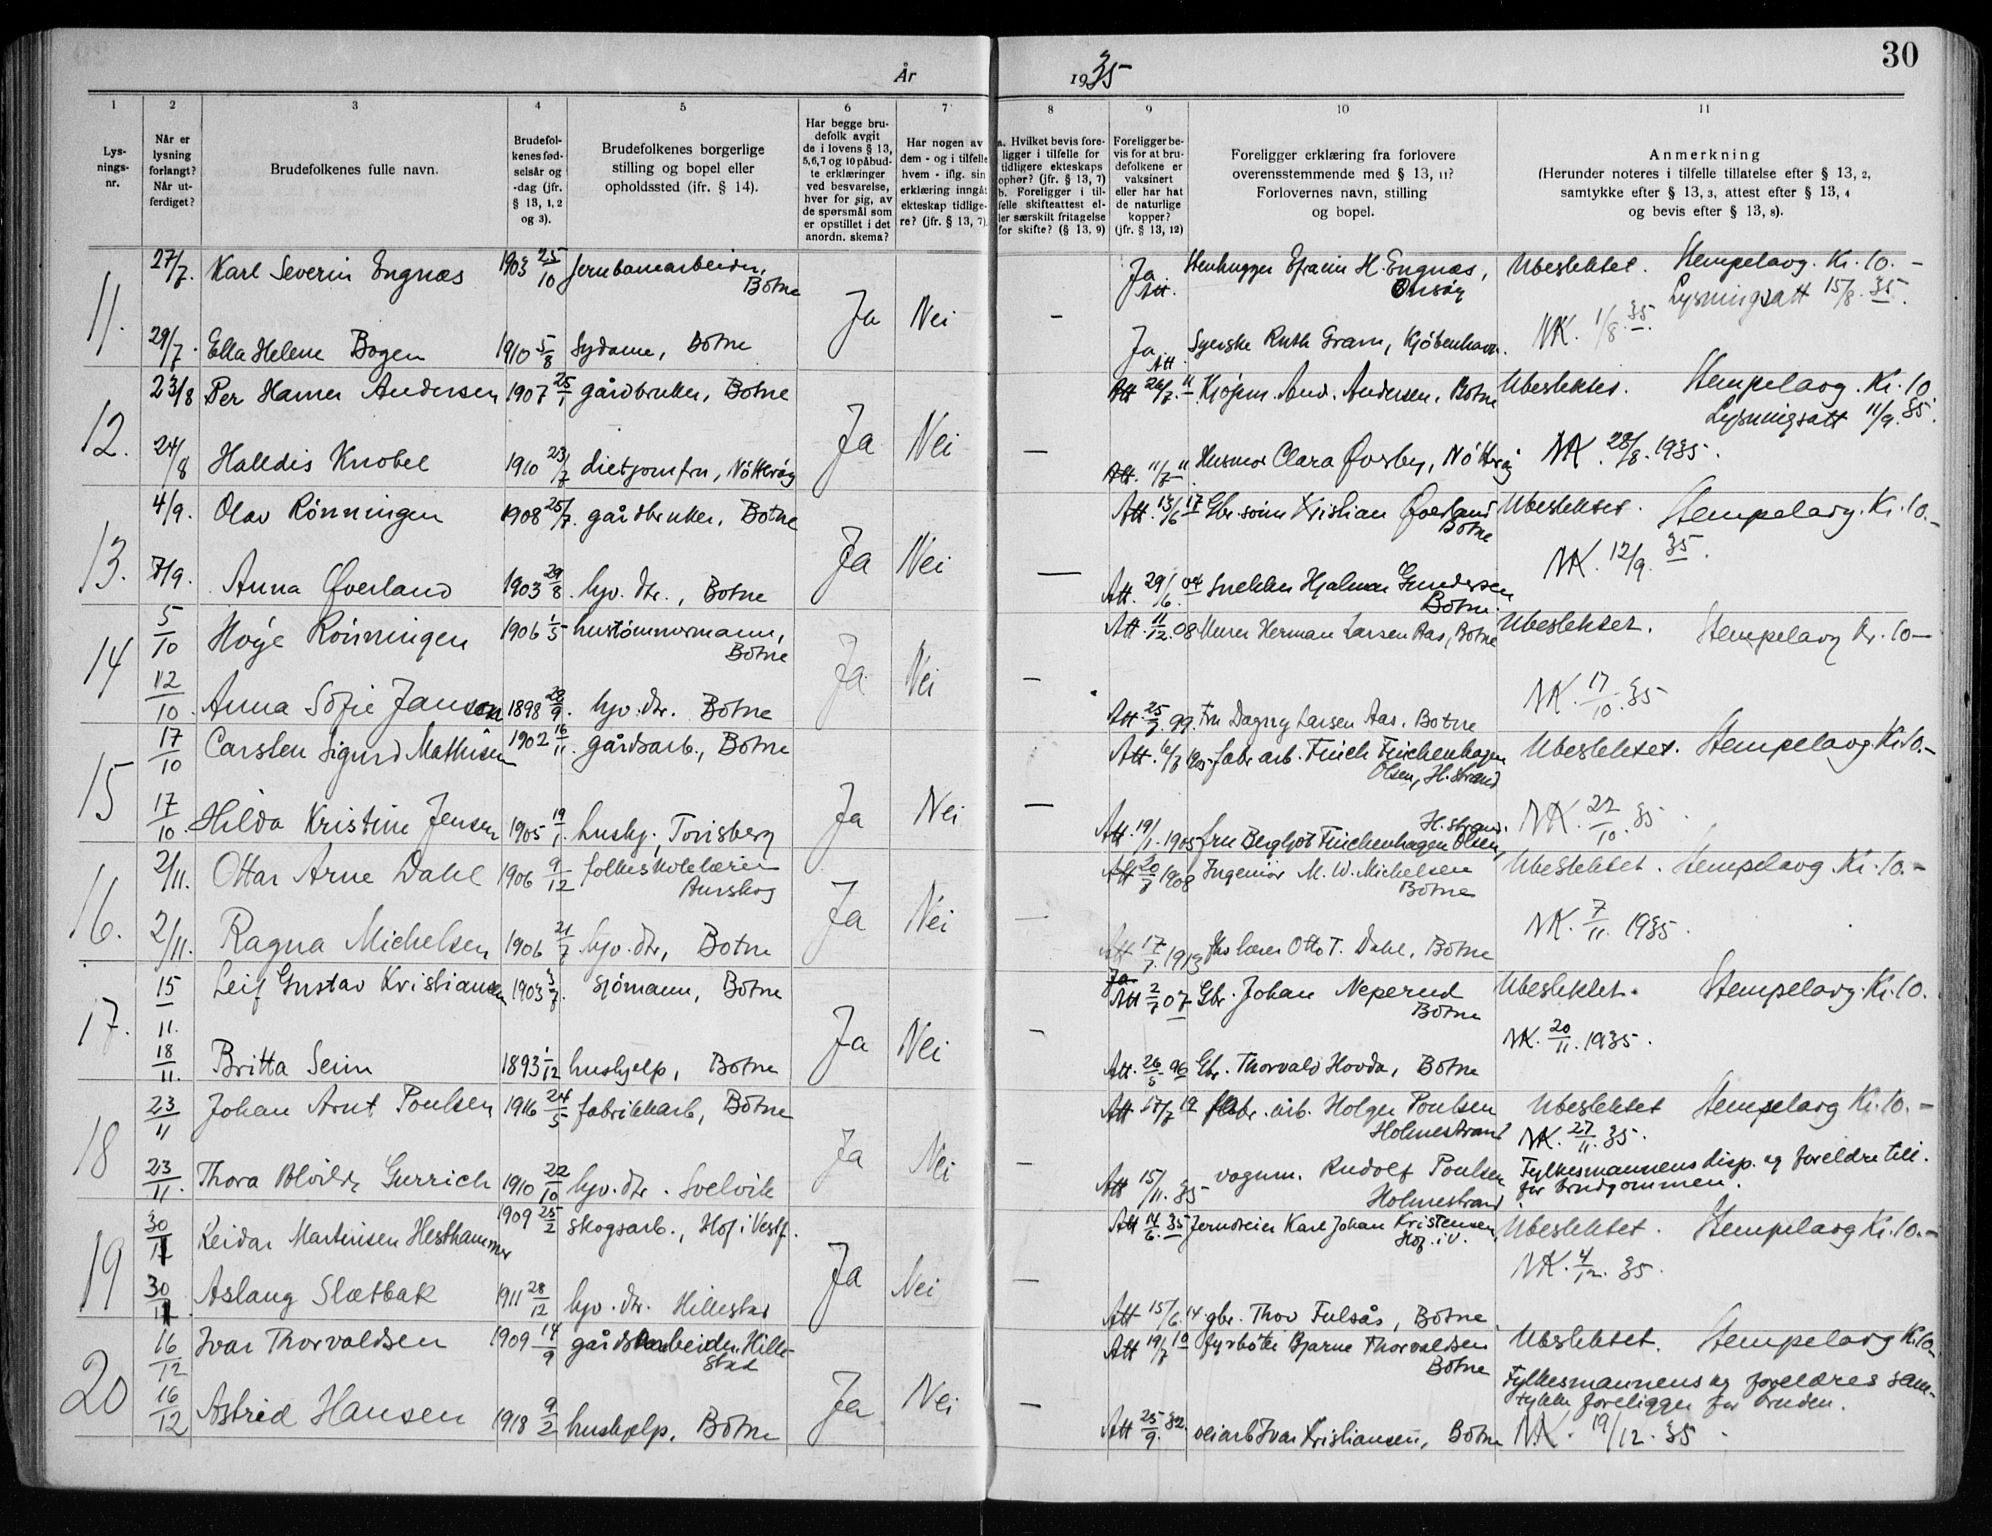 År 1935
30
1
2
3
4
5
6
7
8
9
10
11
Lys-
nings-
nr.
Når er
lysning
forlangt?
Når ut-
ferdiget?
Brudefolkenes fulle navn.
Brudefol-
kenes fød-
selsår og
-dag (jfr.
§ 13, 1, 2
og 3).
Brudefolkenes borgerlige
stilling og bopel eller
opholdssted (jfr. § 14).
Har begge bru-
defolk avgit
de i lovens § 13,
5, 6, 7 og 10 påbud-
te erklæringer
ved besvarelse,
hver for sig, av
de spørsmål som
er opstillet i det
anordn. skema?
Har nogen av
dem - og i tilfelle
hvem - iflg. sin
erklæring inngåt
ekteskap tidlige-
re? (jfr. § 13, 7)
a. Hvilket bevis fore-
ligger i tilfelle for
tidligere ekteskaps
ophør? (jfr. § 13, 7)
b. Foreligger i til-
felle skifteattest el-
ler særskilt fritagelse
for skifte? (§ 13, 9)
Foreligger be-
vis for at bru-
defolkene er
vaksinert
eller har hat
de naturlige
kopper?
(jfr. § 13, 12)
Foreligger erklæring fra forlovere
overensstemmende med § 13, 11?
Forlovernes navn, stilling
og bopel.
Anmerkning
(Herunder noteres i tilfelle tillatelse efter § 13, 2,
samtykke efter § 13, 3, attest efter § 13, 4
og bevis efter § 13, 8).
11. 27/7. Karl Severin Engnæs 1903 25/10 Jernbanearbeider, Botne Ja Nei - Ja Att. Stenhugger Efraim H. Engnæs, Onsøy Ubeslektet. Stempelavg. Kr. 10.-
Lysningsatt 15/8. 35.
29/7. Ella Helene Bogen 1910 5/8 Sydame, Botne Ja Att. Syerske Ruth Gram, Kjøbenhavn. NK. 1/8. 35.
12. 23/8 Per Hamer Andersen 1907 25/1 gårdbruker, Botne Ja Nei - Att 26/7. 11 Kjøpm. And. Andersen, Botne Ubeslektet. Stempelavg. Kr. 10
Lysningsatt 11/9. 35.
24/8 Halldis Knobel 1910 23/7 dietjomfru, Nøtterøy Att. 11/7 11 Husmor Clara Øvrby, Nøtterøy NK. 28/8. 1935.
13. 4/9. Olav Rönningen 1908 25/7. gårdbruker, Botne Ja Nei - Att. 13/6 17 Gbr. sønn Kristian Øverland Botne Ubeslektet. Stempelavg. Kr. 10.-
7/9. Anna Øverland 1903 29/8. hjv. dtr., Botne Att. 29/6. 04 Snekker Hjalmar Gundersen Botne. NK. 12/9. 35.
14 5/10 Höye Rönningen 1906 1/5 hustömmermann, Botne Ja Nei - Att. 11/12. 08 Murer Herman Larsen Aas, Botne Ubeslektet. Stempelavg Kr. 10-
12/10. Anna Sofie Jansen 1898 20/9. hjv. dtr. Botne Att. 25/7 99. Fru Dagny Larsen Aas. Botne NK. 17/10. 35
15 17/10 Carsten Sigurd Mathisen 1902 16/11. gårdsarb., Botne Ja Nei - Att. 6/3 1903 fabr. arb. Finch Finchenhagen Olsen, H.strand Ubeslektet. Stempelavg. Kr. 10.-
17/10. Hilda Kristine Jensen 1905 19/1. hushj. Tønsberg Att. 19/1. 1905 fru Bergljot Finchenhagen Olsen, H.strand. NK. 22/10. 35.
16. 2/11. Ottar Arne Dahl 1906 9/12 folkeskolelærer Aurskog Ja Nei Att 20/7 1908 Ingeniør M. W. Michelsen Botne Ubeslektet. Stempelavg. Kr. 10.-
2/11. Ragna Michelsen 1906 21/7 hjv. dtr, Botne Att 17/7. 1913 lærer Otto T. Dahl, Botne NK. 7/11. 1935.
17. 15/11. Leif Gustav Kristiansen 1903 3/7. sjömann, Botne Ja Nei - Ja Att 2/7 07 Gbr. Johan Neperud Botne Ubeslektet. Stempelavg. Kr. 10.
18/11. Britta Seim 1893 1/12 hushjelp, Botne Att. 26/5 96 Gbr. Thorvald Hovda, Botne NK. 20/11. 1935.
18 23/11 Johan Arnt Poulsen 1916 24/5 fabrikkarb, Botne Ja Nei - Att 17/7 19 fabr. arb. Holger Poulsen Holmestrand Ubeslektet Stempelavg Kr. 10.-
NK. 27/11. 35.
23/11. Thora Gurrich 1910 22/10 hjv. dtr. Svelvik Att 15/11. 35 - vognm. Rudolf Poulsen Holmestrand Fylkesmannens disp. og foreldre till.
for brudgommen.
19 30/11 Reidar Martinsen Hesthammer 1909 25/2 skogsarb., Hof i Vestf. Ja Nei - Att 14/6. 35 Jerndreier Karl Johan Kristensen, Hof. i V. Ubeslektet. Stempelavg Kr. 10.-
30/11. Aslaug Slætbak 1911 28/12 hjv. dtr. Hillestad Att 15/6. 14. gbr. Thov Fulsås, Botne. NK. 4/12. 35.
20 16/12 Ivar Thorvaldsen 1909 14/9 gårdsarbeider, Hillestad Ja Nei - Att 19/7 10 fyrbøter Bjarne Thorvaldsen Botne Ubeslektet. Stempelavg Kr. 10-
Fylkesmannens og foreldres sam-
tykke foreligger for bruden.
16/12 Astrid Hansen 1918 9/2 hushjelp, Botne Att 25/9. 32. veiarb Ivar Kristiansen, Botne NK. 19/12. 35